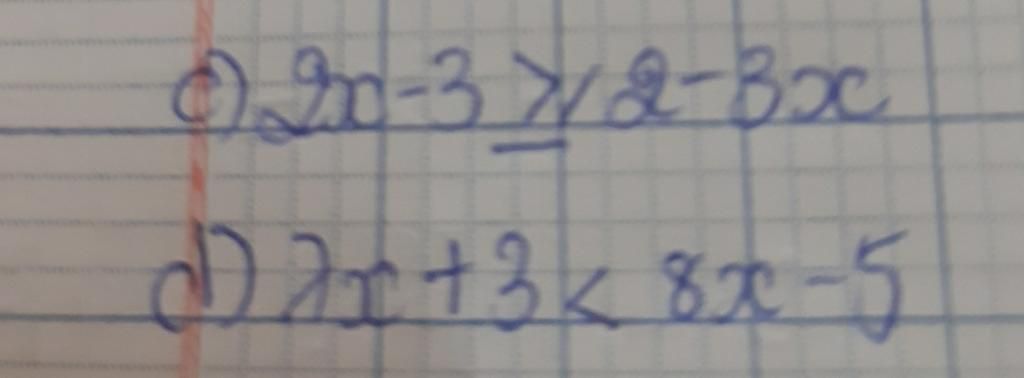 c) 2x - 3 ≥ 2 - 3x
d) 7x + 3 < 8x - 5